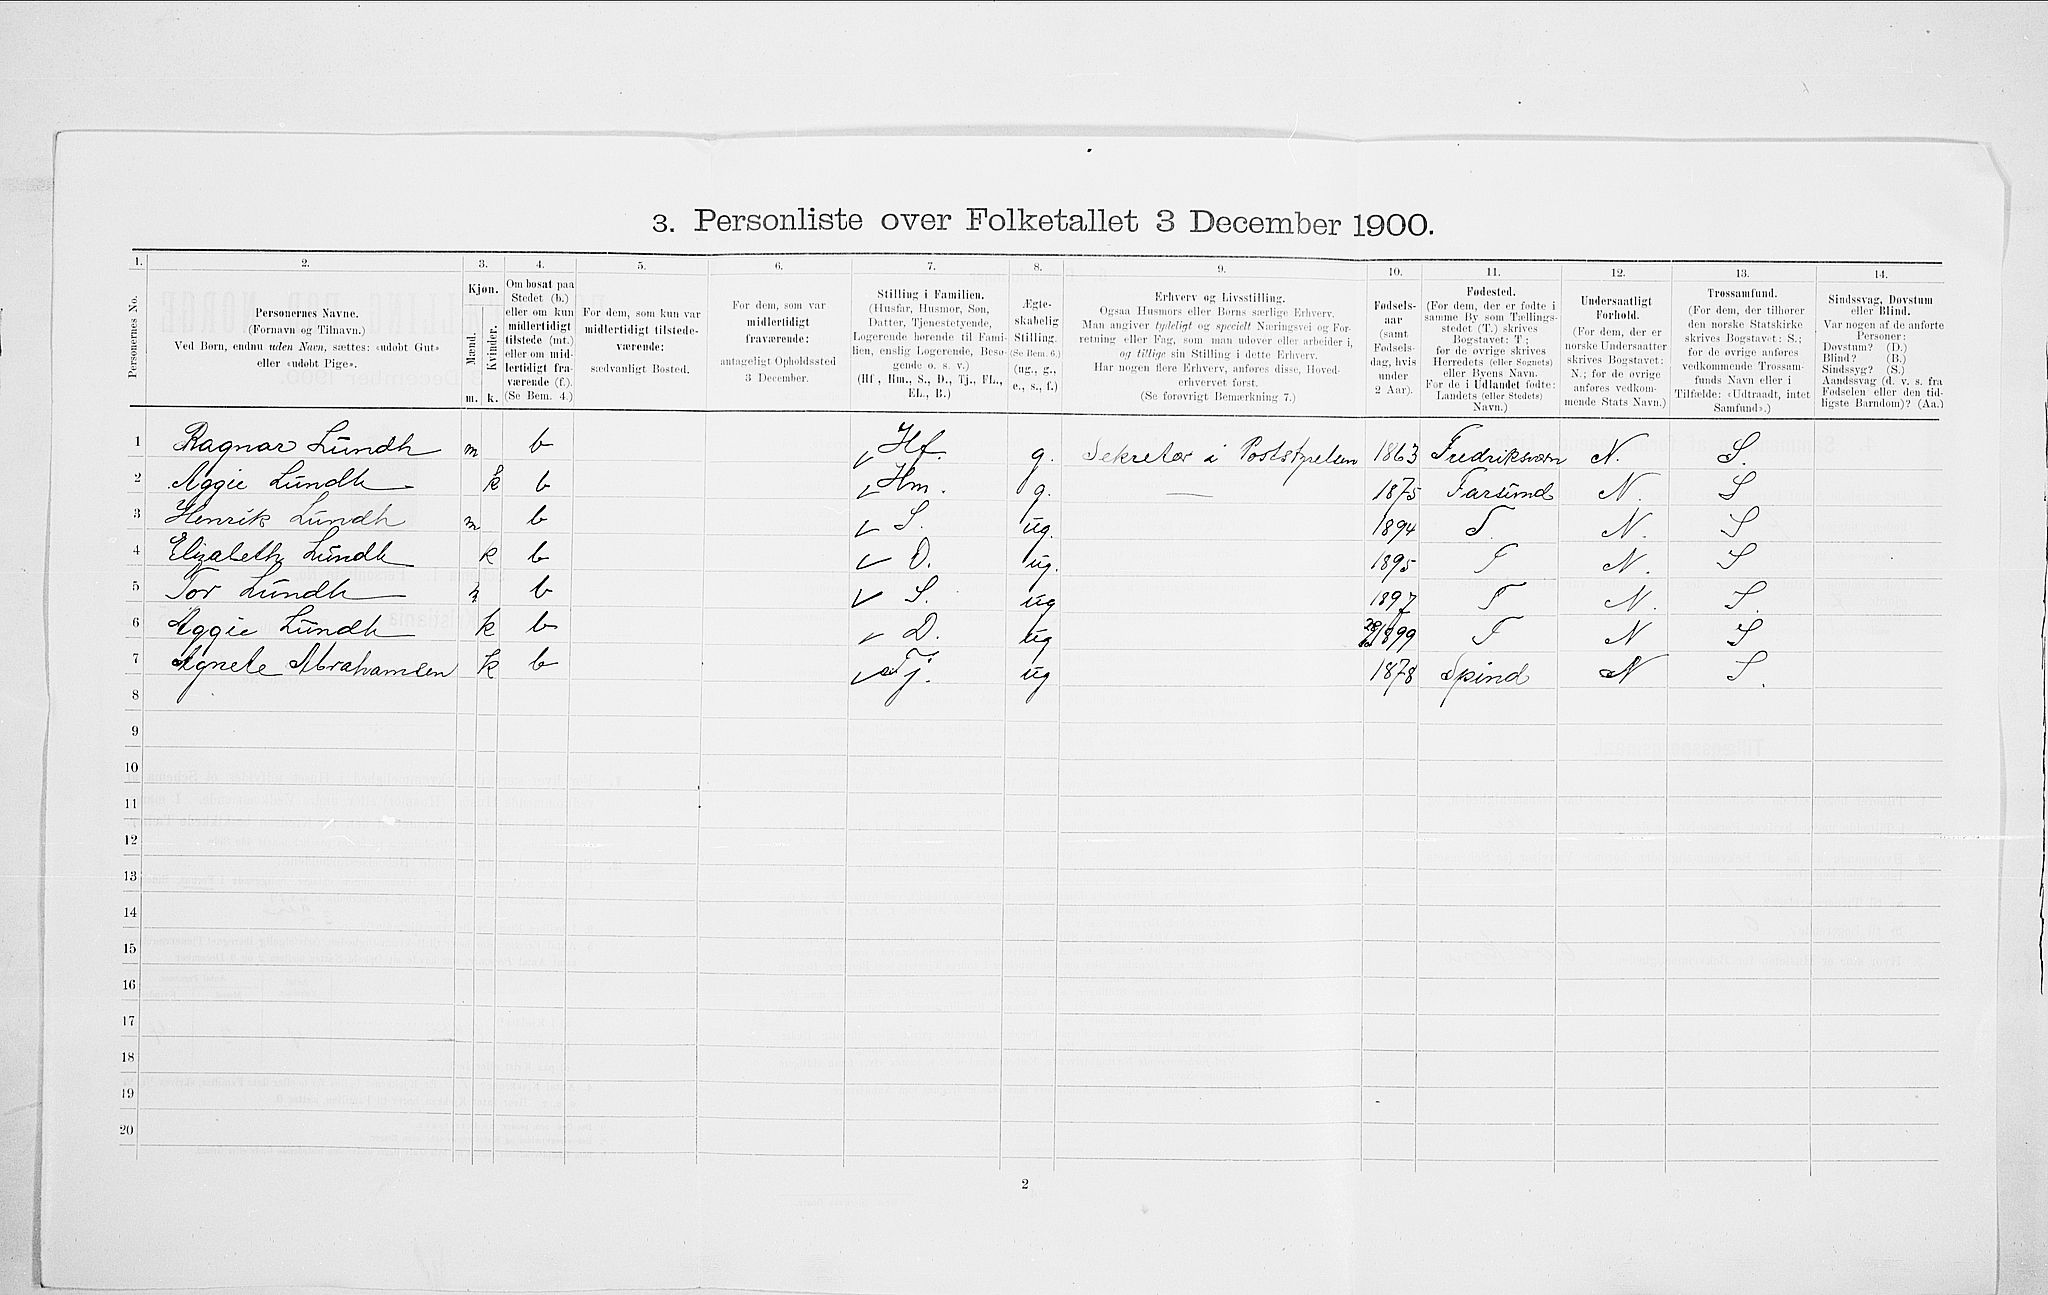 3. Personliste over Folketallet 3 December 1900.
1. 2. 3. 4. 5. 6. 7. 8. 9. 10. 11. 12. 13. 14.
Personernes No.
Personernes Navne.
(Fornavn og Tilnavn.)
Ved Børn, endnu uden Navn, sættes: «udøbt Gut»
eller «udøbt Pige».
Kjøn.
Mænd.
Kvinder.
m. k.
Om bosat paa
Stedet (b.)
eller om kun
midlertidigt
tilstede (mt.)
eller om mid-
lertidigt fra-
værende (f.).
(Se Bem. 4.)
For dem, som kun var
midlertidigt tilstede-
værende:
sædvanligt Bosted.
For dem, som var
midlertidigt
fraværende:
antageligt Opholdssted
3 December.
Stilling i Familien.
(Husfar, Husmor, Søn,
Datter, Tjenestetyende,
Logerende hørende til Fami-
lien, enslig Logerende, Besø-
gende o. s. v.)
(Hf, Hm., S., D., Tj., FL.,
EL., B.)
Ægte-
skabelig
Stilling.
(Se Bem. 6.)
(ug., g.,
e., s., f.)
Erhverv og Livsstilling.
Ogsaa Husmors eller Børns særlige Erhverv.
Man angiver tydeligt og specielt Næringsvei og For-
retning eller Fag, som man udøver eller arbeider i,
og tillige sin Stilling i dette Erhverv.
Har nogen flere Erhverv, anføres disse, Hoved-
erhvervet først.
(Se forøvrigt Bemærkning 7.)
Fødsels-
aar
(samt
Fødsels-
dag, hvis
under
2 Aar).
Fødested.
(For dem, der er fødte i
samme By som Tællings-
stedet (T.) skrives
Bogstavet: T;
for de øvrige skrives
Herredets (eller Sognets)
eller Byens Navn.
For de i Udlandet fødte:
Landets (eller Stedets)
Navn.)
Undersaatligt
Forhold.
(For dem, der er
norske Undersaatter
skrives Bogstavet:
N.; for de øvrige
anføres vedkom-
mende Stats Navn.)
Trossamfund.
(For dem, der tilhører
den norske Statskirke
skrives Bogstavet: S.;
for de øvrige anføres
vedkommende Trossam-
funds Navn eller i
Tilfælde: «Udtraadt, intet
Samfund».)
Sindssvag, Døvstum
eller Blind.
Var nogen af de anførte
Personer:
Døvstum? (D.)
Blind? (B.)
Sindssyg? (S.)
Aandssvag (d. v. s. fra
Fødselen eller den tid-
ligste Barndom)? (Aa.)
1 Ragnar Lundh m b Hf. g. Sekretær i Poststyrelsen 1863 Fredriksværn N. S.
2 Aggie Lundh k b Hm. g. — 1875 Farsund N. S
3 Henrik Lundh m b S. ug. 1894 T. N. S
4 Elizabeth Lundh k b D. ug. 1895 T N. S
5 Tor Lundh m b S. ug 1897 T N. S.
6 Aggie Lundh k b D. ug 1899 T N S
7 Agnete Abrahamsen k b Tj. ug 1878 Spind N S.
8
9
10
11
12
13
14
15
16
17
18
19
20
2